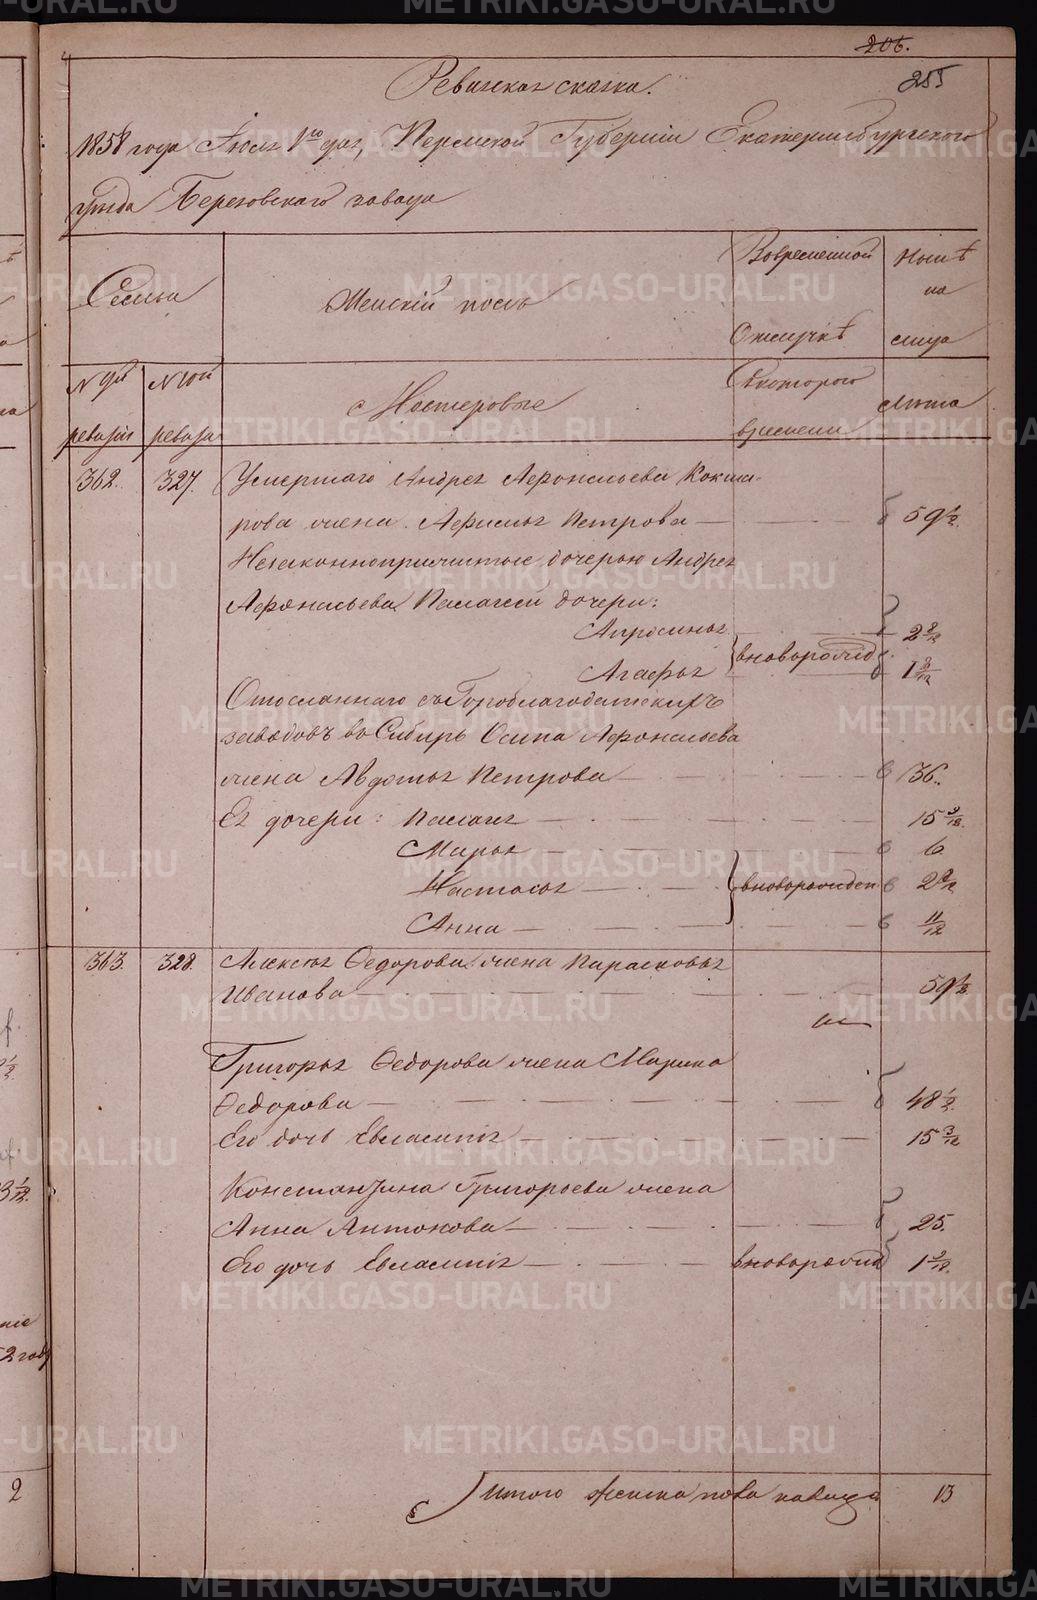 206.
255
Ревизская сказка.
1858 года Июля 1го дня, Пермской Губернии Екатеринбургского
уезда Березовского завода
Семьи
Женскій полъ
Вовременной
Отлучкѣ
Нынѣ
на
лицо
N 9й
ревизіи
N 10й
ревизи
Мастеровые
Скоторого
времени
Лѣта
362.
327.
Умершаго Андрея Афонасьева Кокша-
рова жена Афимья Петрова 59 1/2
Незаконноприжитые дочерью Андрея
Афонасьева Палагеей дочери:
Апросинья 2 8/12
вноворожд
Агафья 1 8/12
Отосланнаго съ Гороблагодатскихъ
заводовъ въ Сибирь Осипа Афонасьева
жена Авдотья Петрова 36.
Ея дочери: Палагея 15 3/12
Марья 6
Настасья вноворожден 2 9/12
Анна 11/12
363.
328.
Алексея Федорова жена Парасковья
Иванова 59 1/2
Григорья Федорова жена Марина
Федорова 48 1/2
Его дочь Евлампія 15 3/12
Константина Григорьева жена
Анна Антонова 25.
Его дочь Евлампія вноворожд 1 3/12
Итого женска пола налицо 13
2 году
2
METRIKI.GASO-URAL.RU